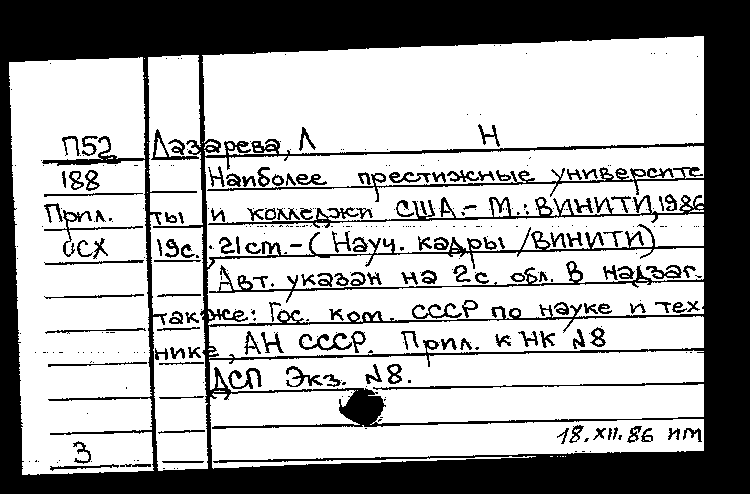 П52 Лазарева, Л Н
188 Наиболее престижные университе
Прил. ты и колледжи США.- М.: ВИНИТИ, 1986
ОСХ 19с.; 21 см.- (Науч. кадры /ВИНИТИ)
Авт. указан на 2с. обл. В надзаг.
также: Гос. ком. СССР по науке и тех-
нике, АН СССР. Прил. к НК №8
ДСП Экз. №8.
18.XII.86 ИМ
3